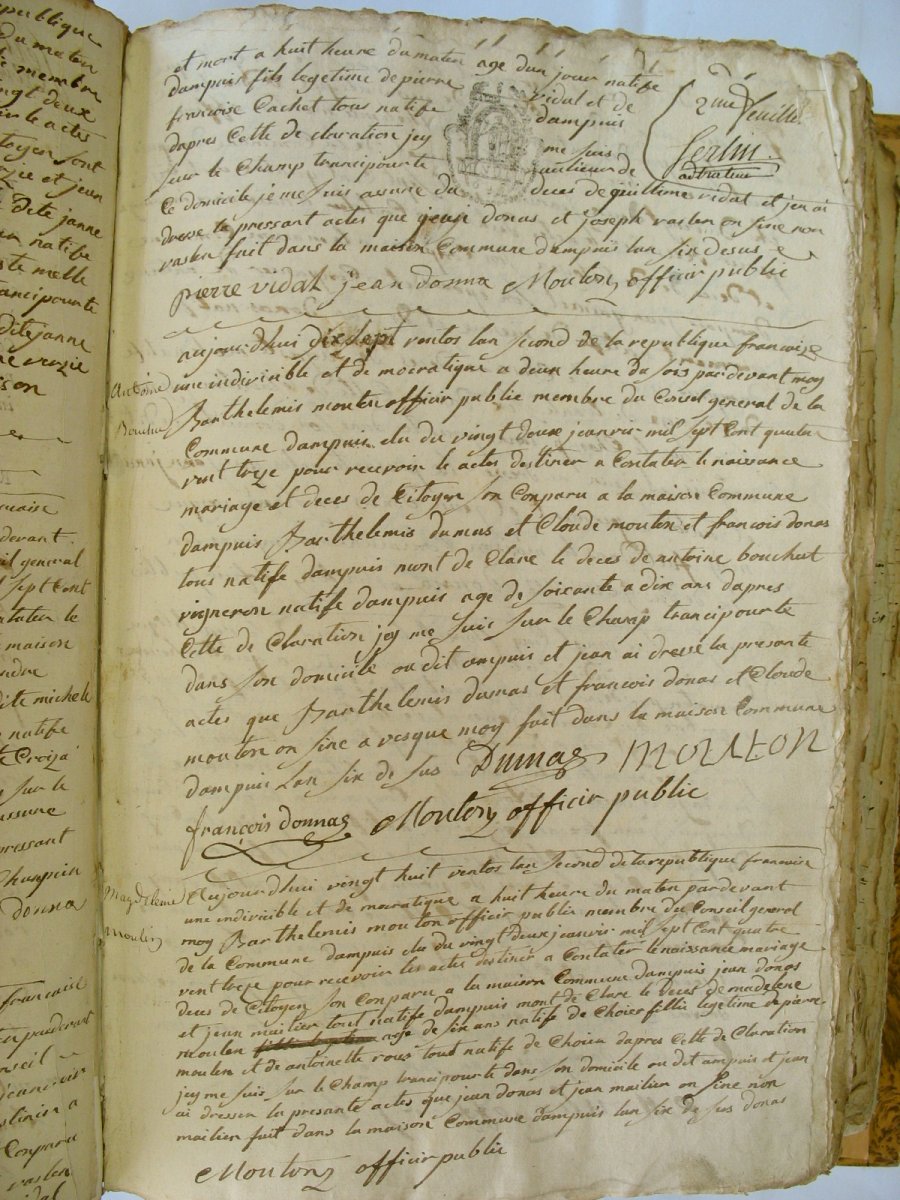 publique
du maten
membre
ingt deux
les actes
itoyen sont
et jean
Dite janne
natife
melle
rancipourte
dite janne
verzie
ison
rancaise
devant
eil general
sept Cont
tater le
maison
dite michele
natife
Croiza
sur le
assure
pressant
Chuspein
donna
francaise
pardevant
onseil
jeanvier
estinier a
Conparu
vaslen
et mort a huit heure du maten age dun jour natife
dampuis fils legetime de pierre vidal et de
francoise Cachet tous natife dampuis
dapres Cette de claration jey me suis
sur le Champ trancipourte au lieu de
Ce domicile je me suis assure du deces de guilliome vidal et jen ai
dresse le pressant actes que jean donas et joseph vaslen on sine non
vaslen fait dans la maison Commune dampuis lan six desus
2me feuille
Serlin
adtrateur
pierre vidal jean donna Mouton officir public
aujourdhui dix sept ventos lan second de la republique francoize
Antoine
Bouchu
une indivisible et de mocratique a deux heure du soir pardevant moy
Barthelemis mouton officir public membre du Conseil general de la
Commune dampuis elu du vingt doux jeanvir mil sept Cent quatre
vent treze pour recevoir le actes destiner a Contater le naissance
mariage et deces de Citoyen Son Conparu a la maison Commune
dampuis Barthelemis dumas et Cloude mouton et francois donas
tous natife dampuis mont de Clare le deces de antoine bouchut
vigneron natife dampuis age de soicante a dix ans dapres
Cette de Claration jey me suis sur le Champ trancipourte
dans son domicile ou dit ampuis et jean ai dresse la presante
actes que Barthelemis dumas et francois donas et Cloude
mouton on sine avesque moy fait dans la maison Commune
dampuis Lan six de sus Dumas MOUTON
françois donnas Mouton officir public
Magdeleine
Moulin
Aujourdhui vingt huit ventos lan second de la republique francoise
une indivicible et de mocratique a huit heure du maten pardevant
moy Barthelemis mouton officir public membre du Conseil general
de la Commune dampuis elu du vingt deux jeanvir mil sept Cent quatre
vent treze pour recevoir les actes destiner a Contater le naissance mariage
deces de Citoyen Son Conparu a la maison Commune dampuis jean donas
et jean mailier tout natife dampuis mont de Clare le deces de madelene
moulen age de six ans natife de Choier fellie legetime de pierre
moulen et de antoinette rous tout natife de Choien dapres Cette de Claration
jey me suis sur le Champ trancipourte dans son domicile ou dit ampuis et jean
ai dresser la presante actes que jean donas et jean mailier on sine non
mailien fait dans la maison Commune dampuis lan six de sus donas
Mouton officir public